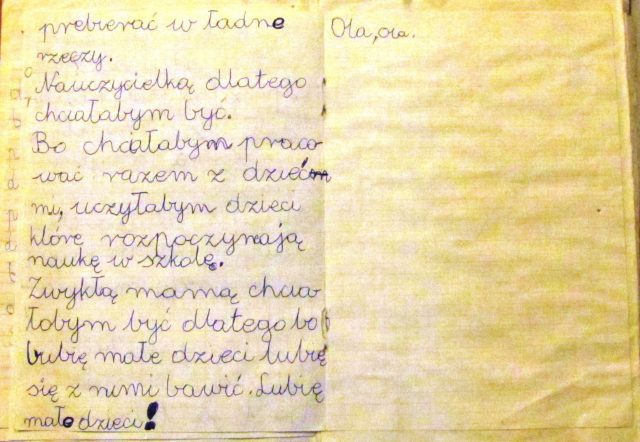 prebierać w ładne
rzeczy.
Nauczycielką dlatego
chciałabym być.
Bo chciałabym praco
wać razem z dzieć
mi, uczyłabym dzieci
które rozpoczynają
naukę w szkole.
Zwykłą mamą chcia
łobym być dlatego bo
lubię małe dzieci lubię
się z nimi bawić. Lubię
małe dzieci!
Ola, Ola.